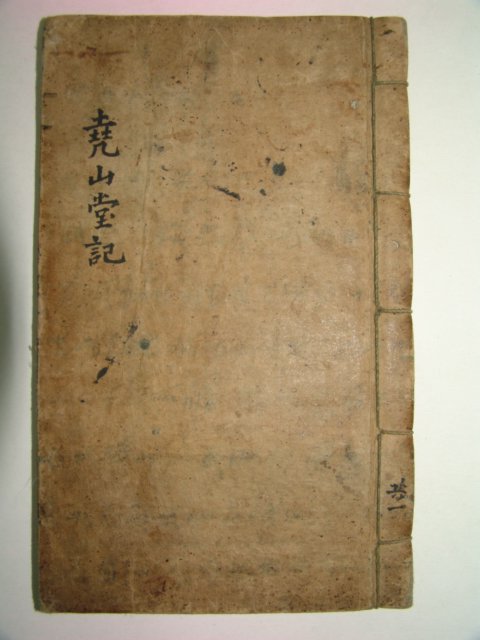 堯山堂記
共一